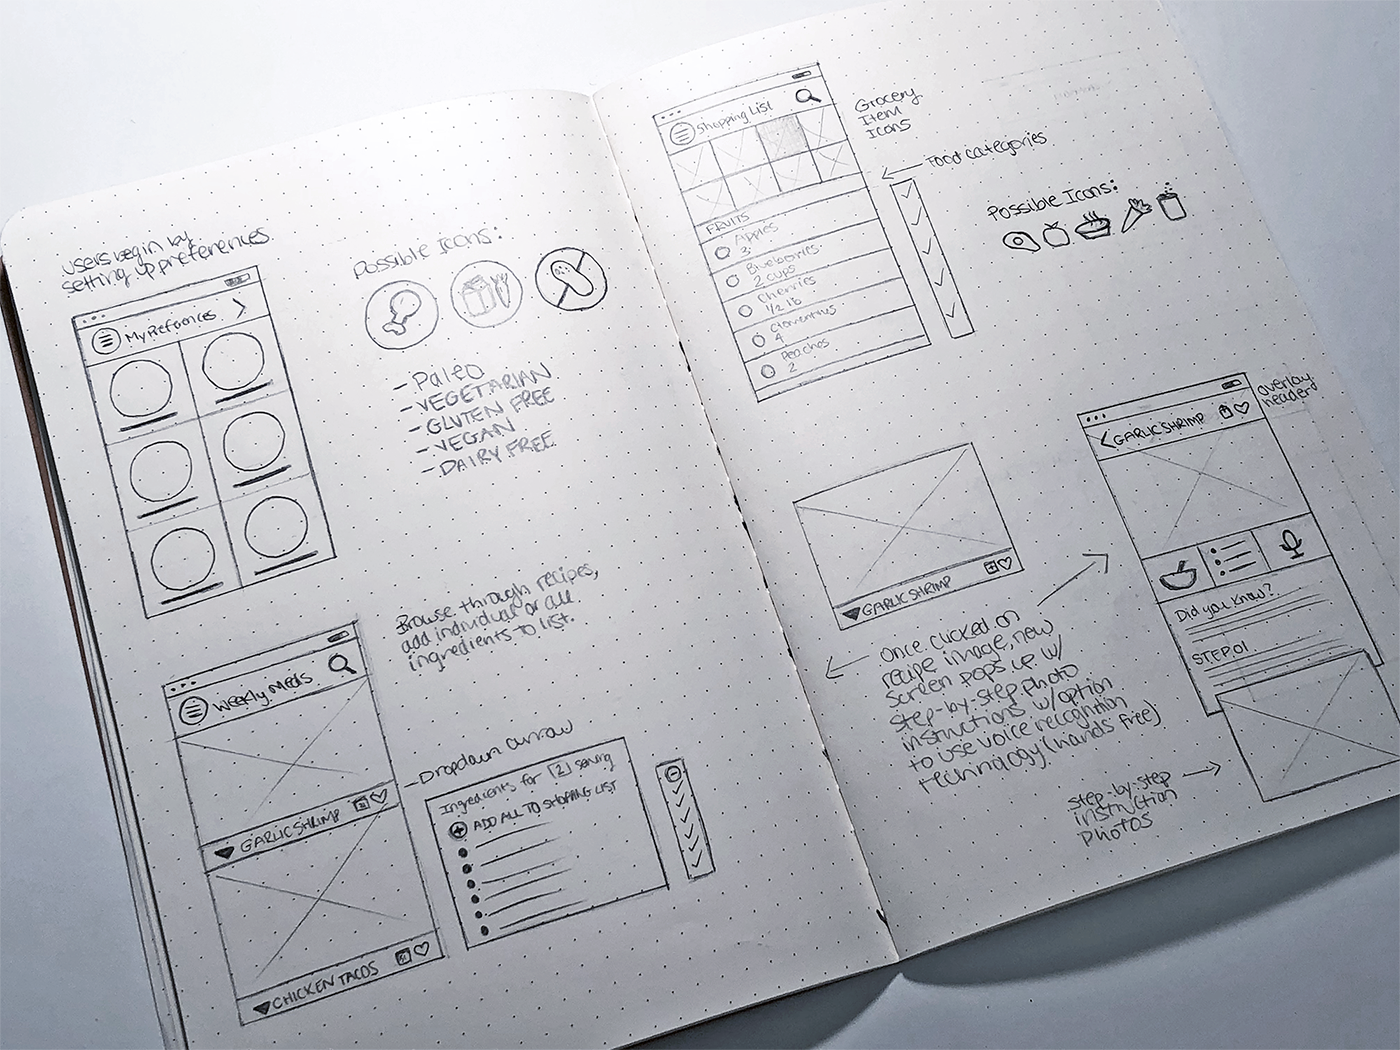 Users begin by
setting up preferences
My Preferences
Possible Icons:
- Paleo
- VEGETARIAN
- GLUTEN FREE
- VEGAN
- DAIRY FREE
Browse through recipes,
add individual or all
ingredients to list.
Weekly Meals
GARLIC SHRIMP
CHICKEN TACOS
Dropdown arrow
Ingredients for [2] serving
ADD ALL TO SHOPPING LIST
Shopping List
FRUITS
Apples
3
Blueberries
2 cups
Cherries
1/2 lb
Clementines
4
Peaches
2
Grocery
Item
Icons
Food categories
Possible Icons:
GARLIC SHRIMP
Once clicked on
recipe image, new
screen pops up w/
step-by-step photo
instructions w/option
to use voice recognition
technology (hands free)
overlay
header
GARLIC SHRIMP
Did you know?
STEP 01
step-by-step
instruction
photos